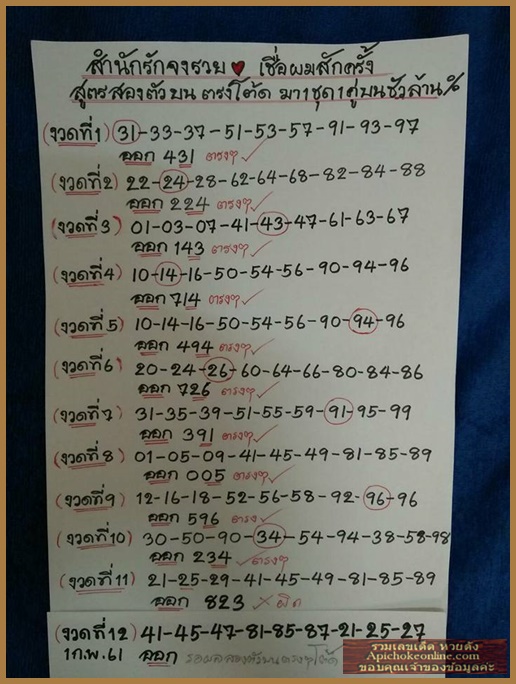 สำนักรักจงรวย ♥ เชื่อผมสักครั้ง
สูตรสองตัวบน ตรงโต๊ด มา1ชุด1คู่บนชัวล้าน%
(งวดที่1) 31-33-37-51-53-57-91-93-97
ออก 431 ตรงๆ ✓
(งวดที่2) 22-24-28-62-64-68-82-84-88
ออก 224 ตรงๆ ✓
(งวดที่3) 01-03-07-41-43-47-61-63-67
ออก 143 ตรงๆ ✓
(งวดที่4) 10-14-16-50-54-56-90-94-96
ออก 714 ตรงๆ ✓
(งวดที่5) 10-14-16-50-54-56-90-94-96
ออก 494 ตรงๆ ✓
(งวดที่6) 20-24-26-60-64-66-80-84-86
ออก 726 ตรงๆ ✓
(งวดที่7) 31-35-39-51-55-59-91-95-99
ออก 391 ตรงๆ ✓
(งวดที่8) 01-05-09-41-45-49-81-85-89
ออก 005 ตรงๆ ✓
(งวดที่9) 12-16-18-52-56-58-92-96-96
ออก 596 ตรง ✓
(งวดที่10) 30-50-90-34-54-94-38-58-98
ออก 234 ✓ ตรงๆ
(งวดที่11) 21-25-29-41-45-49-81-85-89
ออก 823 × ผิด
(งวดที่12) 41-45-47-81-85-87-21-25-27
1ก.พ.61 ออก รอผลสองตัวบนตรงๆโต๊ด ✓
รวมเลขเด็ด หวยดัง
Apichokeonline.com
ขอบคุณเจ้าของข้อมูลค่ะ